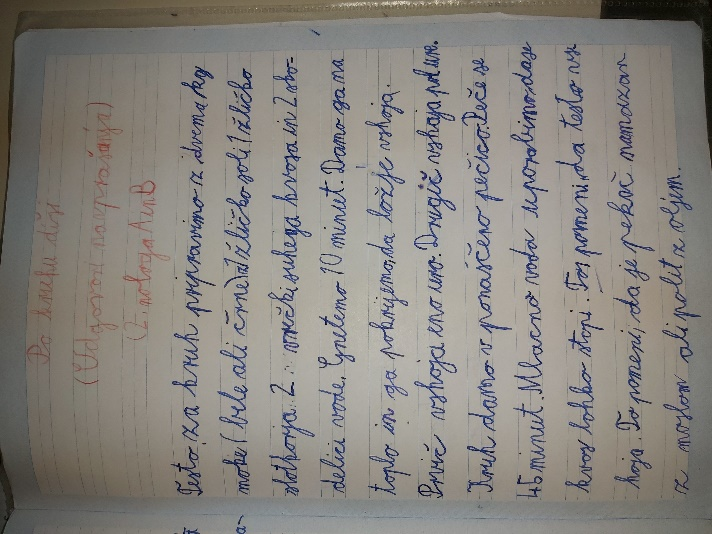 Po kruhu diši
(Odgovori na vprašanja)
(2. naloga A in B
Testo za kruh pripravimo z dvema kg
moke (bele ali črne) 1 žličko soli 1 žličko
sladkorja 2 vrečki suhega kvasa in 2 sko-
delici vode. Gnetemo 10 minut. Damo ga na
toplo in ga pokrijemo, da ložje vzhaja.
Prvič vzhaja eno uro. Drugič vzhaja pol ure.
Kruh damo v ponaščeno pečico. Peče se
45 minut. Mlačno vodo uporabimo, da se
kvas lahko stopi. To pomeni, da testo vz
haja. To pomeni, da je pekač namazan
z maslom ali polit z oljem.